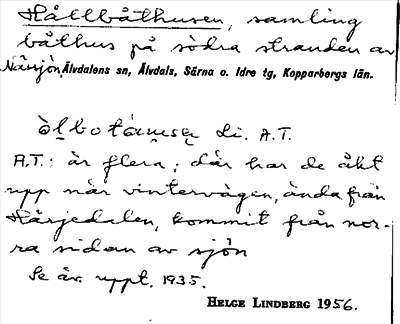 Hållbåthusen, samling
båthus på södra stranden av
Nåvsjön, Älvdalens sn, Älvdals, Särna o. Idre tg, Kopparbergs län.
Li. A.T.
A.T.: är flera; där har de åkt
upp när vintervägen, ända från
Härjedalen, kommit från nor-
ra sidan av sjön
Se äv. uppt. 1935.
HELGE LINDBERG 1956.